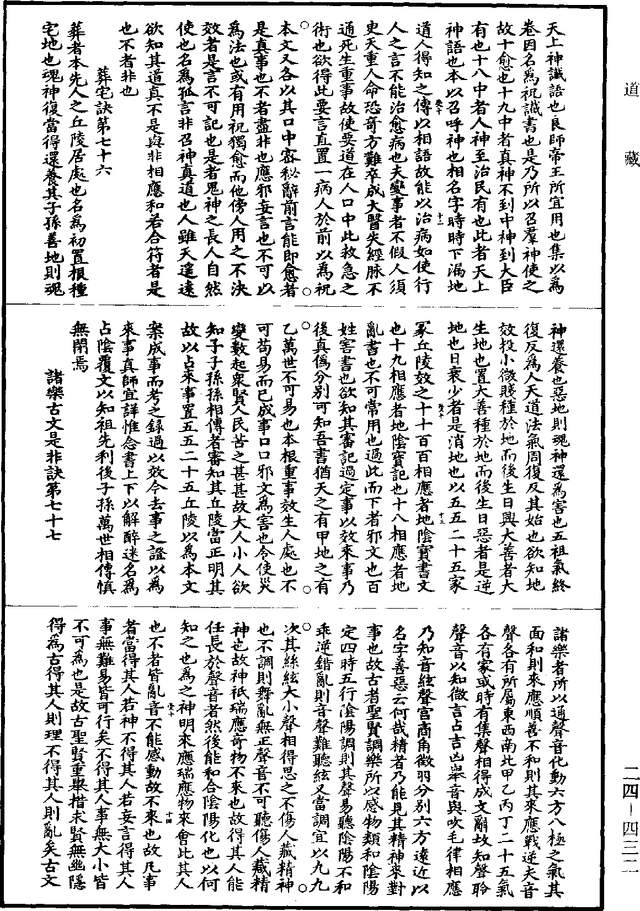 道藏
天上神讖語也良師帝王所宜用也集以為
卷因名為祝讖書也是乃所以召羣神使之
故十愈也十九中者真神不到中神到大臣
有也十八中者人神至治民有也此者天上
神語也本以召呼神也相名字時時下漏地
道人得知之傳以相語故能以治病如使行
人之言不能治愈病也夫變事者不假人須
臾天重人命恐奇方難卒成大醫失經脉不
通死生重事故使要道在人口中此救急之
術也欲得此要言直置一病人於前以為祝
本文又各以其口中密秘辭前言能即愈者
是真事也不者盡非也應邪妄言也不可以
為法也或有用祝獨愈而他傍人用之不決
效者是言不可記也是者鬼神之長人自然
使也名為孤言非召神真道也人雖天遥遠
欲知其道真不是與非相應和若合符者是
也不者非也
葬宅訣第七十六
葬者本先人之丘陵居處也名為初置根種
宅地也魂神復當得還養其子孫善地則魂
神還養也惡地則魂神還為害也五祖氣終
復反為人天道法氣周復反其始也欲知地
效投小微賤種於地而後生日興大善者大
生地也置大善種於地而後生日惡者是逆
地也日衰少者是消地也以五五二十五家
冢丘陵效之十十百百相應者地陰寶書文
也十九相應者地陰寶記也十八相應者地
亂書也不可常用也過此而下者邪文也百
姓害書也欲知其審記過定事以效來事乃
後真偽分別可知吾書猶天之有甲地之有
乙萬世不可易也本根重事效生人處也不
可苟易而已成事口口邪文為害也令使災
變數起衆賢人民苦之甚甚故大人小人欲
知子子孫孫相傳者審知其丘陵當正明其
故以占來事置五五二十五丘陵以為本文
案成事而考之錄過以效今去事之證以為
來事真師宜詳惟念書上下以解醉迷名為
占陰覆文以知祖先利後子孫萬世相傳慎
無閉焉
諸樂古文是非訣第七十七
諸樂者所以通聲音化動六方八極之氣其
面和則來應順善不和則其來應戰逆夫音
聲各有所屬東西南北甲乙丙丁二十五氣
各有家或時有集聲相得成文辭故知聲聆
聲音以知微言占吉凶舉音與吹毛律相應
乃知音絃聲宮商角徵羽分別六方遠近以
名字善惡云何哉精者乃能見其精神來對
事也故古者聖賢調樂所以感物類和陰陽
定四時五行陰陽調則其聲易聽陰陽不和
乖逆錯亂則音聲難聽絃又當調宜以九九
次其絲絃大小聲相得思之不傷人藏精神
也不調則舞亂無正聲音不可聽傷人藏精
神也故神祇瑞應奇物不來也故得其人能
任長於聲音者然後能和合陰陽化也以何
知之也為之神明來應瑞應物來會此其人
也不者皆亂音不能感動故不來也故凡事
者當得其人若神不得其人若妄言得其人
事無難易皆可行矣不得其人事無大小皆
不可為也是故古聖賢重舉措求賢無幽隱
得為古得其人則理不得其人則亂矣古文
二四—四三二